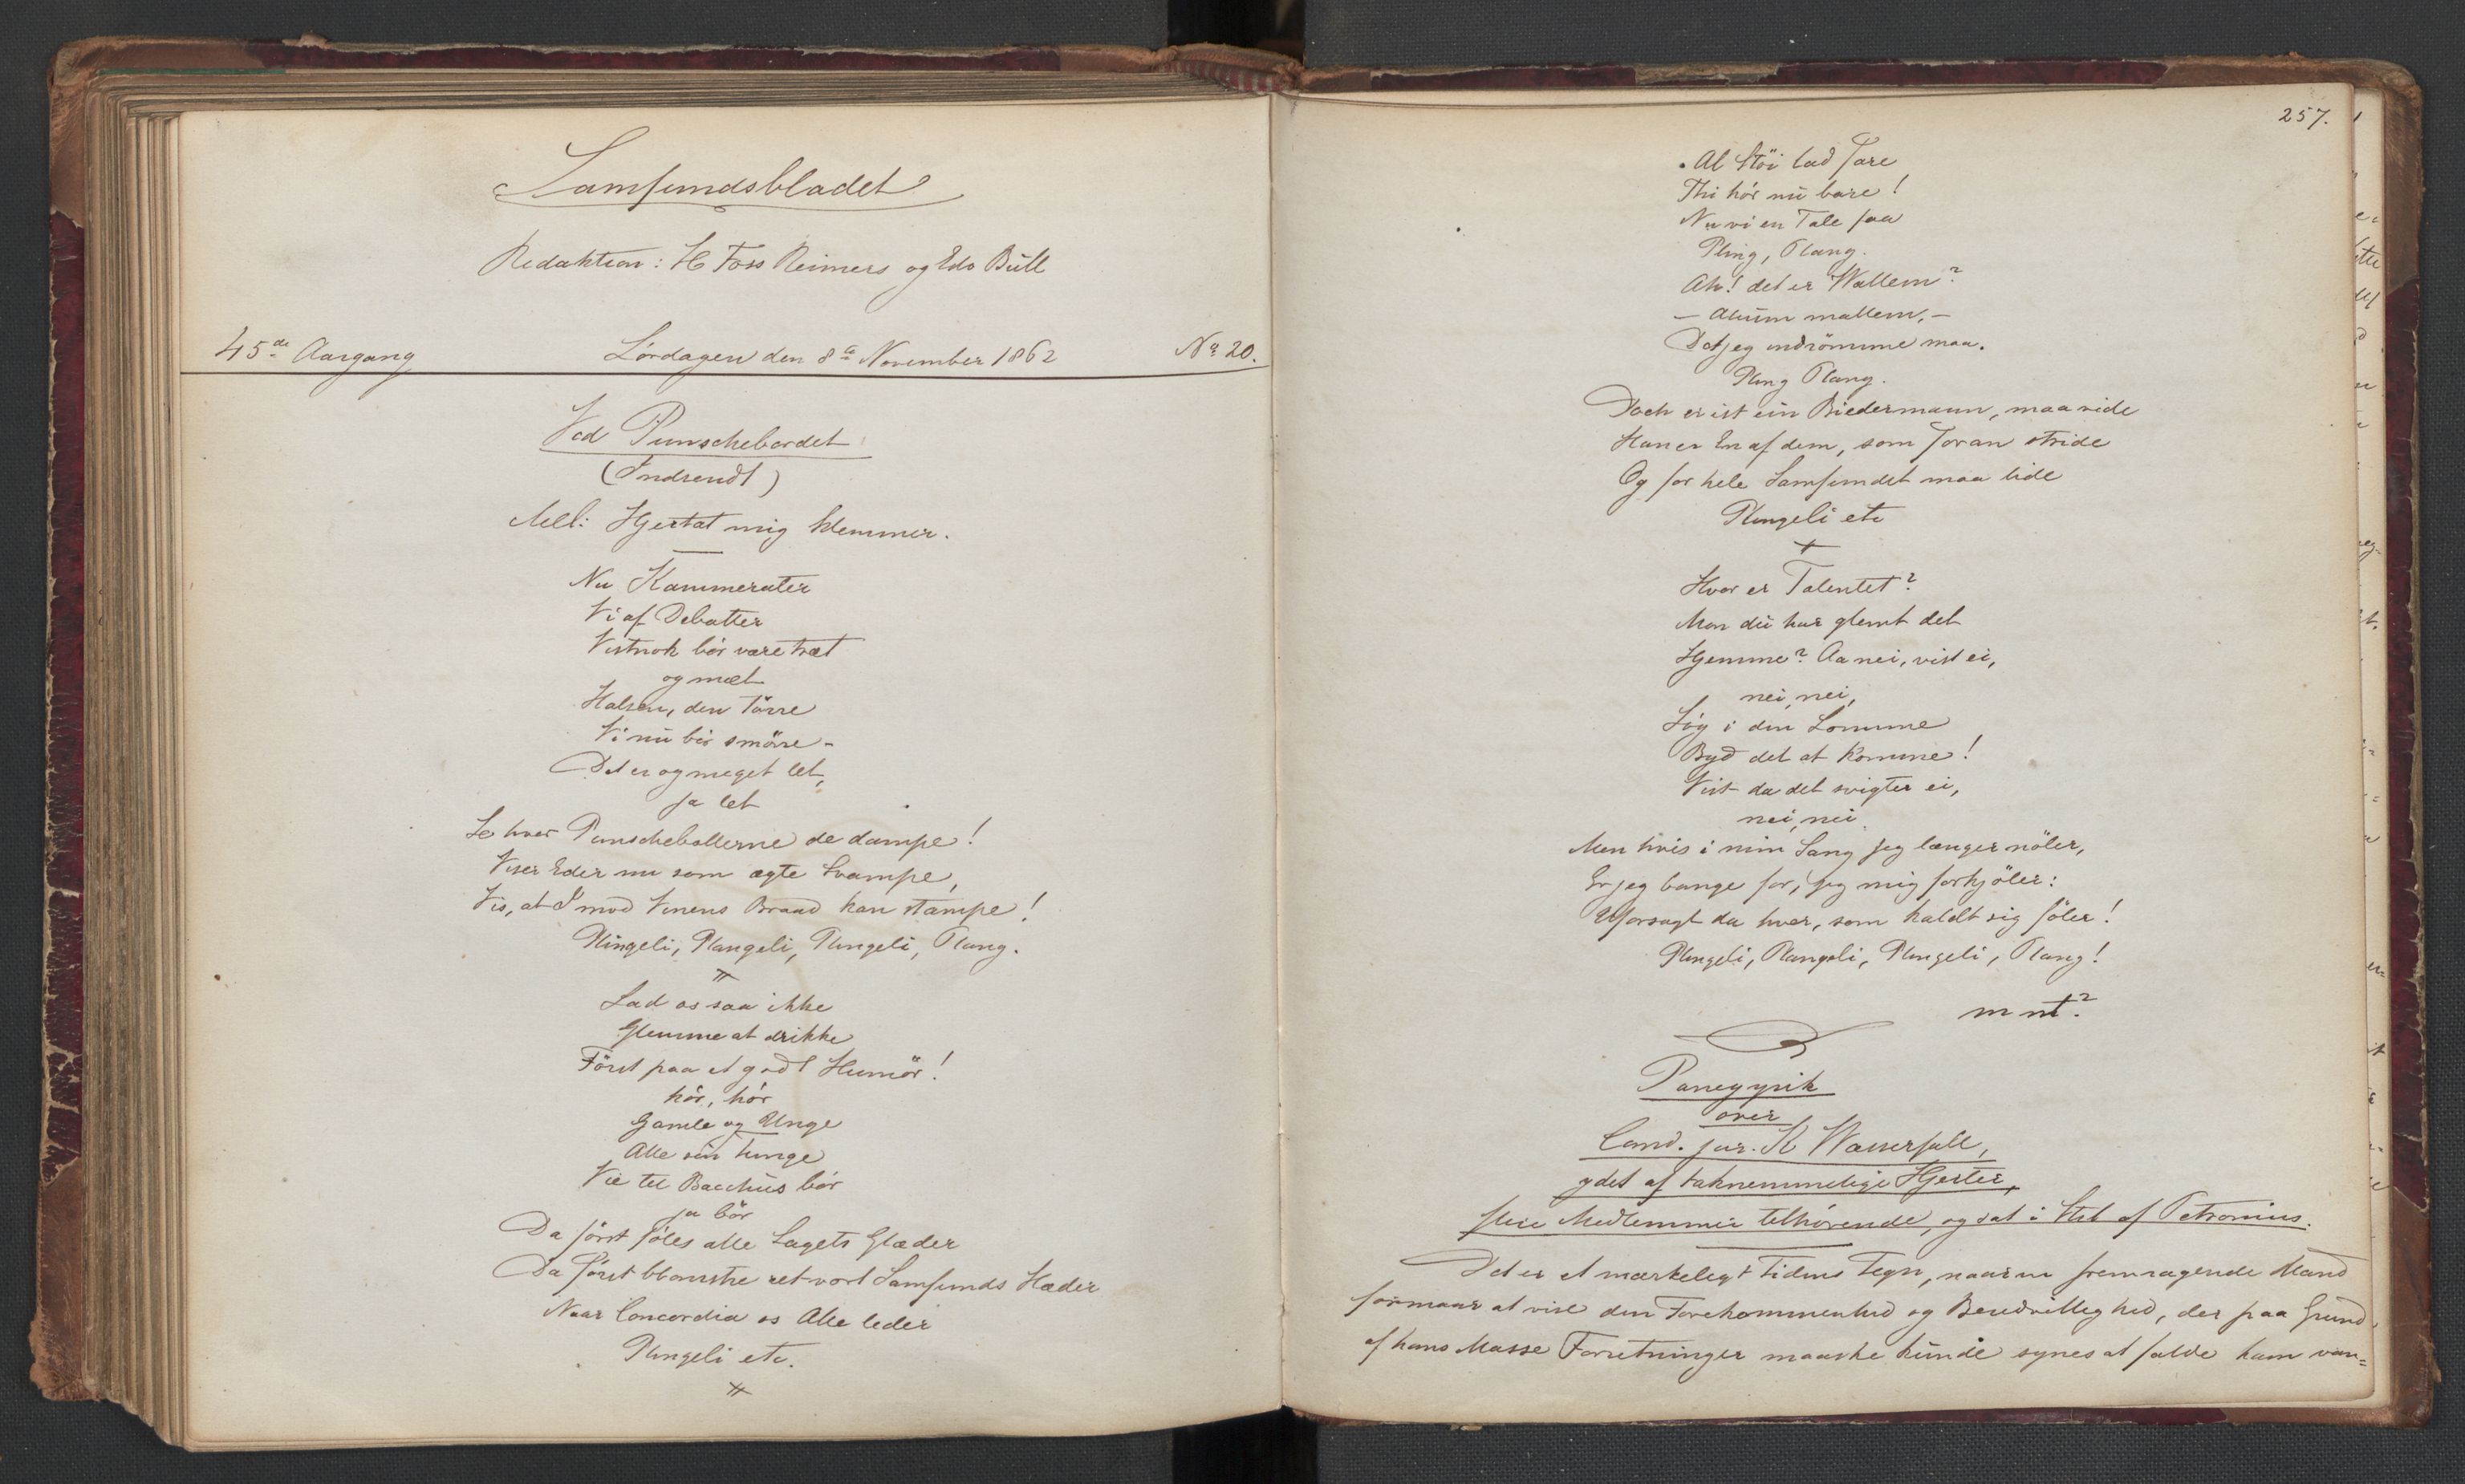 Samfundsbladet
Redaktion: H Foss Reimers og Edv Bull
45de Aargang Lördagen den 8de November 1862 No 20.
Ved Punschebordet
(Indsendt)
Mel: Hjertat mig klemmer.
Nu Kammerater
Vi af Debatter
Vistnok bör være træt
og mæt
Halsen, den törre
Vi nu bör smörre -
Det er og meget let,
ja let
Se hvor Punschebollerne de dampe!
Viser Eder nu som ægte Svampe,
Vis, at I mod Vinens Brand kan stampe!
Plingeli, Plangeli, Plingeli, Plang.
Lad os saa ikke
Glemme at drikke
Först paa et godt Humör!
hör, hör
Gamle og Unge
Alle sin Tunge
Vie til Bacchus bör
ja bör
Da först föles alle Lagets Glæder
Da först blomstre ret vort Samfunds Hæder
Naar Concordia os Alle leder
Plingeli etc.
257.
Al Stöi lad fare
Thi hör nu bare!
Nu vi en Tale faa
Pling, Plang.
Ah! det er Wallem?
- Alium mallem, -
Det jeg indrömme maa.
Pling Plang.
Doch er ist ein Biedermann, maa vide
Han er En af dem, som foran stride
Og for hele Samfundet maa lide
Plingeli etc
Hvor er Talentet?
Mon du har glemt det
Hjemme? Aa nei, vist ei,
nei, nei,
Sög i din Lomme
Byd det at komme!
Vist da det svigter ei,
nei, nei.
Men hvis i min Sang jeg længer nöler,
Er jeg bange for, jeg mig forkjöler:
Uforsagt da hver, som kaldt sig föler!
Plingeli, Plangeli, Plingeli, Plang!
m nt?
Panegyrik
over
Cand. jur. K Wasserfall,
ydet af taknemmelige Hjerter,
flere Medlemmer tilhörende, og dat i Stil af Petronius.
Det er et mærkeligt Tidens Tegn, naar en fremragende Mand
formaar at vise den Forekommenhed og Beredvillighed, der paa Grund
af hans Masse Forretninger maaske kunde synes at falde ham van=